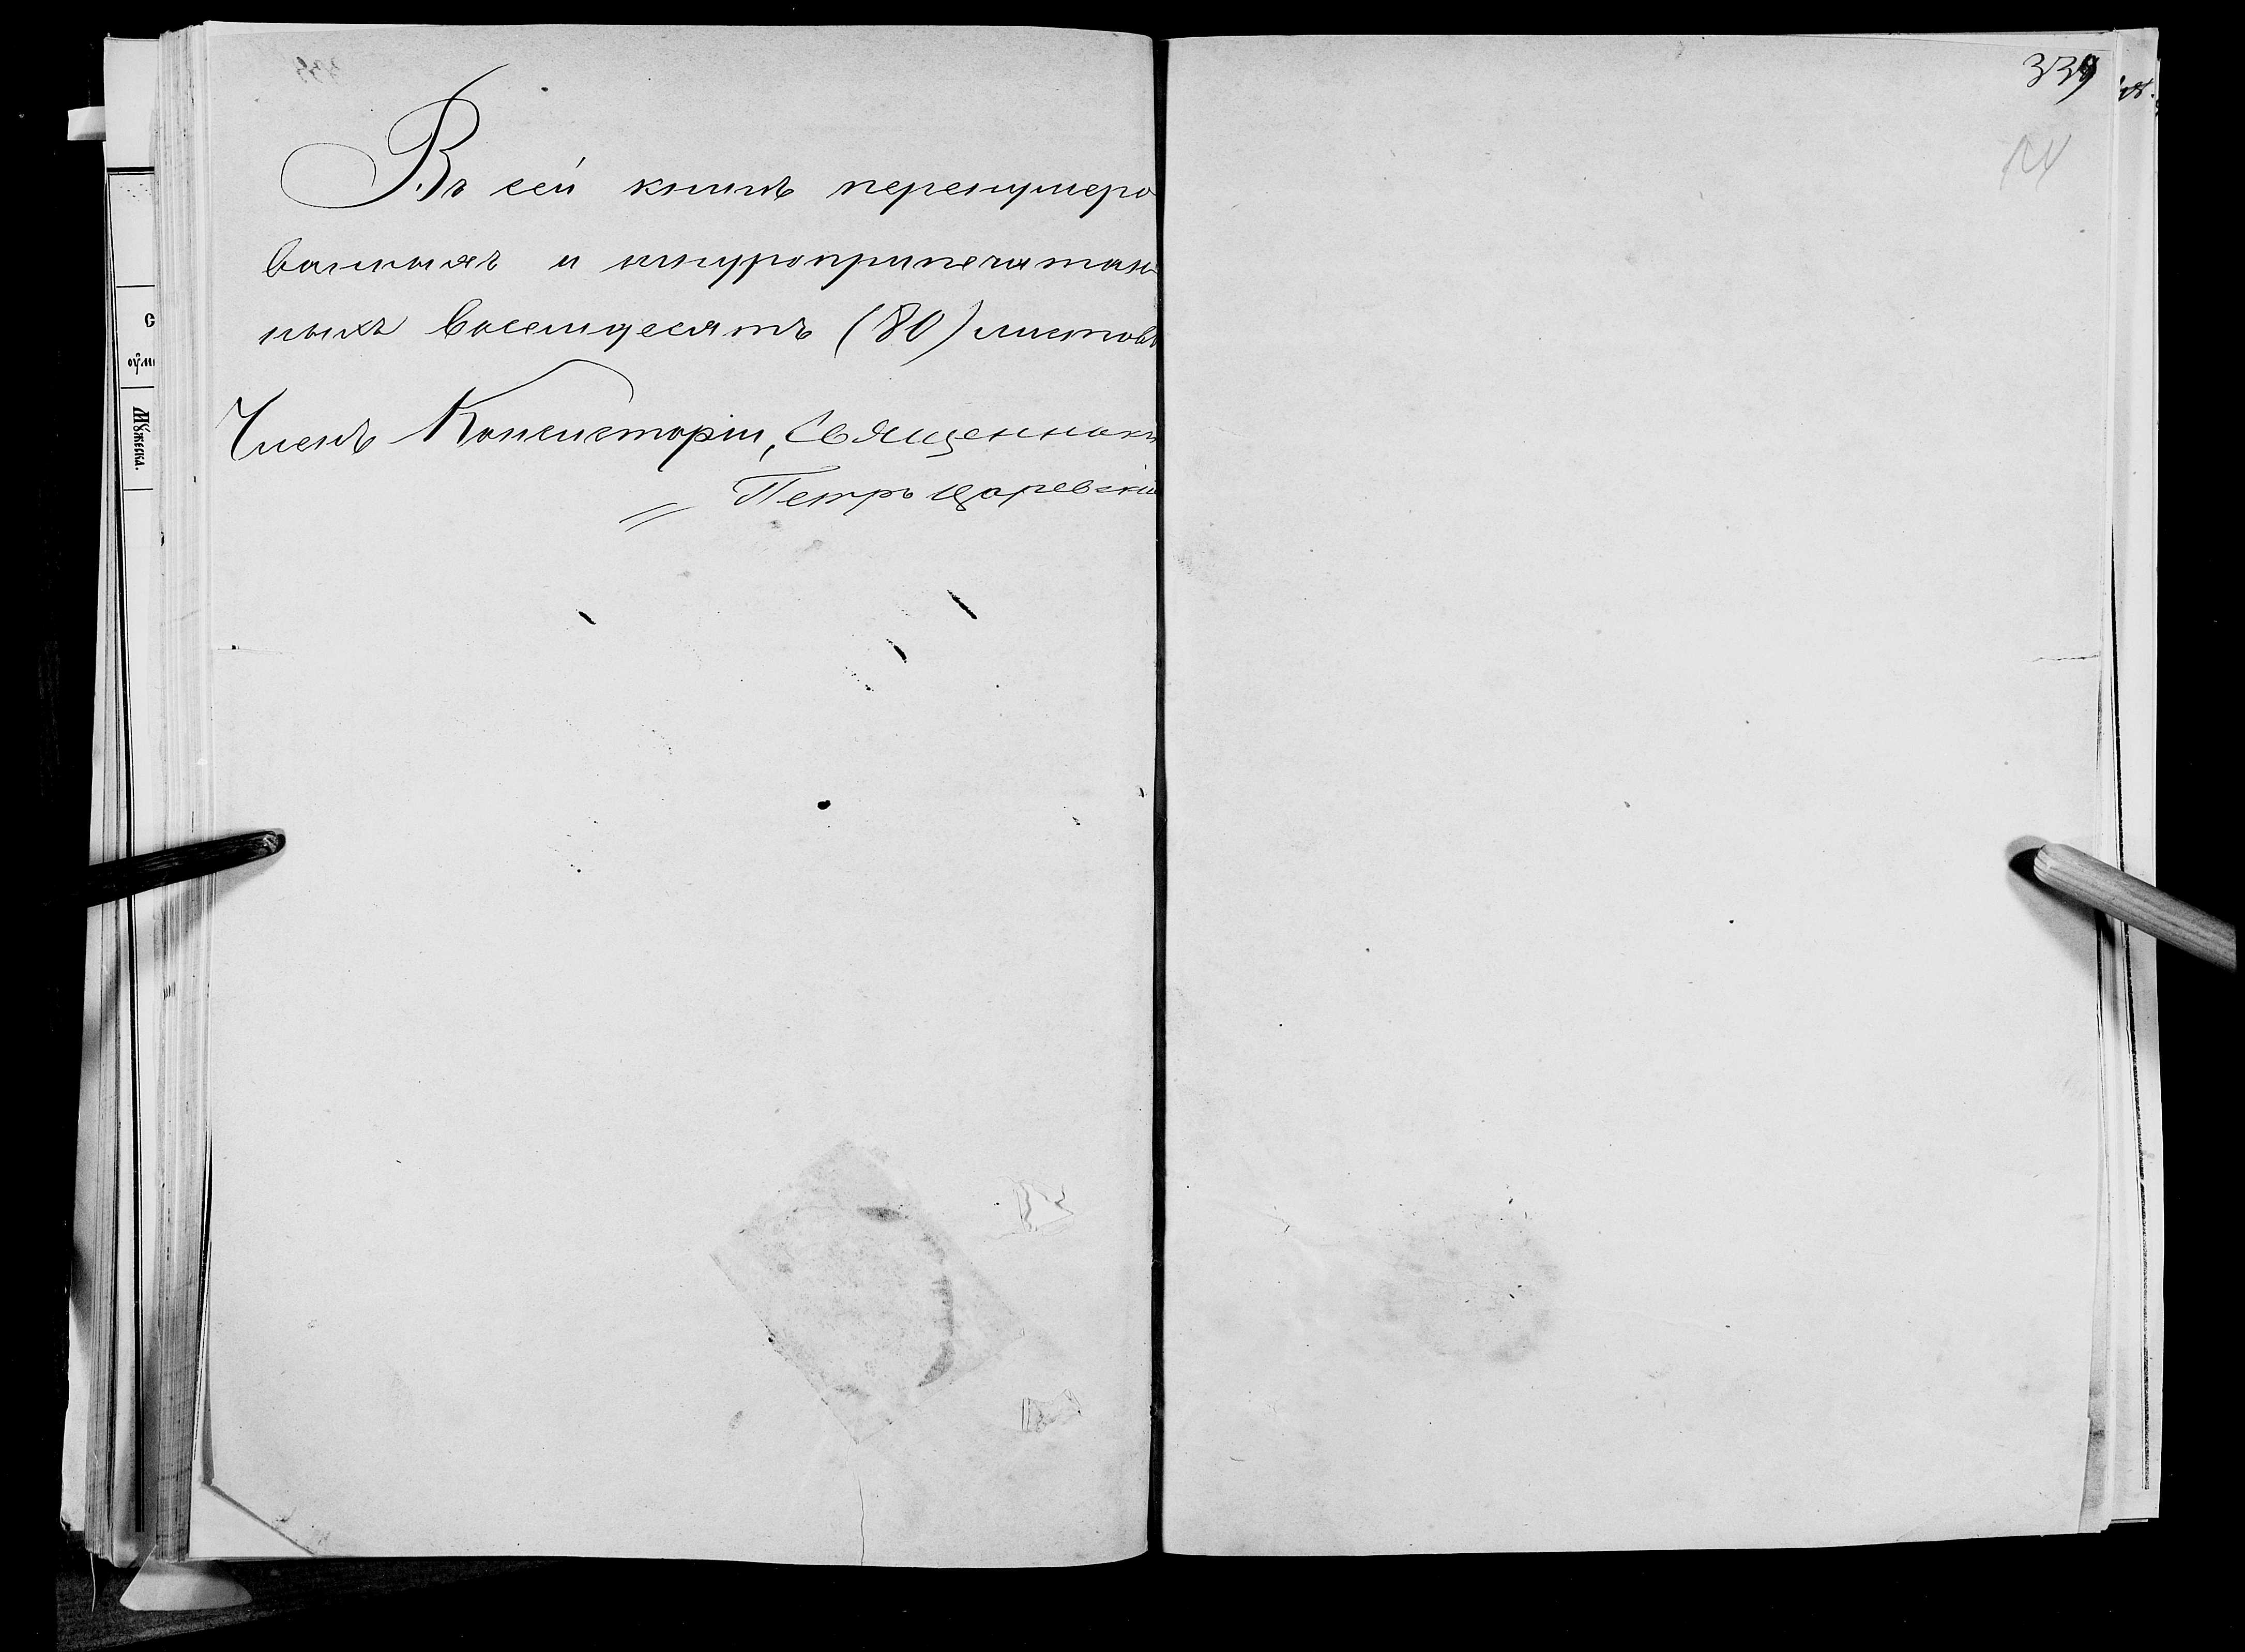 339
Въ сей книгѣ перенумеро
ванныхъ и шнуроприпечатан
ныхъ восемдесятъ (80) листовъ
Членъ Консисторіи, Священникъ
Петръ Царевскій
С
Мꙋжеска.